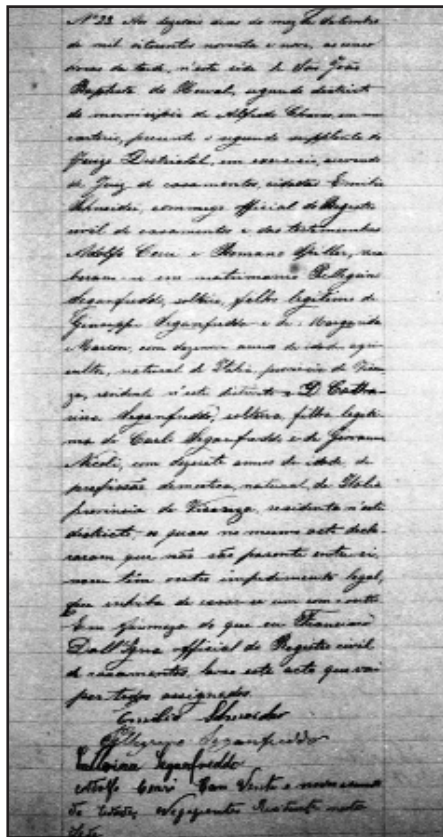 Nº 23. Aos dezeseis dias do mez de Setembro
de mil oitocentos noventa e nove, as cinco
horas da tarde, n'esta séde de São João
Baptista do Herval, segundo districto
do municipio de Alfredo Chaves, em meu
cartorio, presente o segundo supplente do
Juizo Districtal, em exercicio, servindo
de Juiz de casamentos, cidadão Emilio
Schneider, commigo official do Registro
civil de casamentos e das testemunhas
Adolfo e Romano receberam-se
em matrimonio Pellegrino
Seganfreddo, solteiro, filho legitimo de
Giuseppe Seganfreddo e de Margarida
Marcon, com dezenove annos de idade, agricultor,
natural de Italia, provincia de Vicenza,
residente n'este districto e D. Catharina
Seganfreddo, solteira, filha legitima
de Carlo Seganfreddo e de Giovanna
Nicoli, com dezesete annos de idade, de
profissão domestica, natural de Italia
provincia de Vicenza, residente n'este
districto, os quaes no mesmo acto declararam
que não são parente entre si,
nem têm outro impedimento legal,
que inhiba de casar-se um com outro.
Em firmeza do que eu Francisco
Dall'Igna official do Registro civil
de casamentos, lavro este acto que vai
por todos assignados.
Emilio Schneider
Seganfreddo
Catterina Seganfreddo
Adolfo Com Vente e nove
de Residente neste